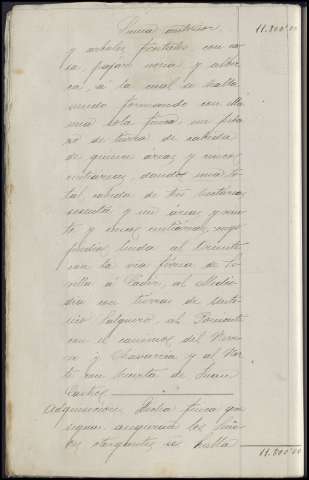 Suma anterior 11.800'00
y arboles frutales con no
ria, pajar, noria y alber
ca, á la cual se halla
unido formando con ella
una sola finca, un peda
zo de tierra de cabida
de quince áreas y cinco
centiáreas, dando una to
tal cabida de tres hectáreas
sesenta y un áreas y vein
te y cinco centiáreas, cuyo
predio linda al Oriente
con la via férrea de Se
villa á Cadiz, al Medio
dia con tierras de
Salguero, al Poniente
con el camino del
y Chavarria y al Nor
te con huerta de Juan
Castro.
Adquisicion. Dicha finca que
segun aseguran los Seño
res otorgantes se halla
11.800'00